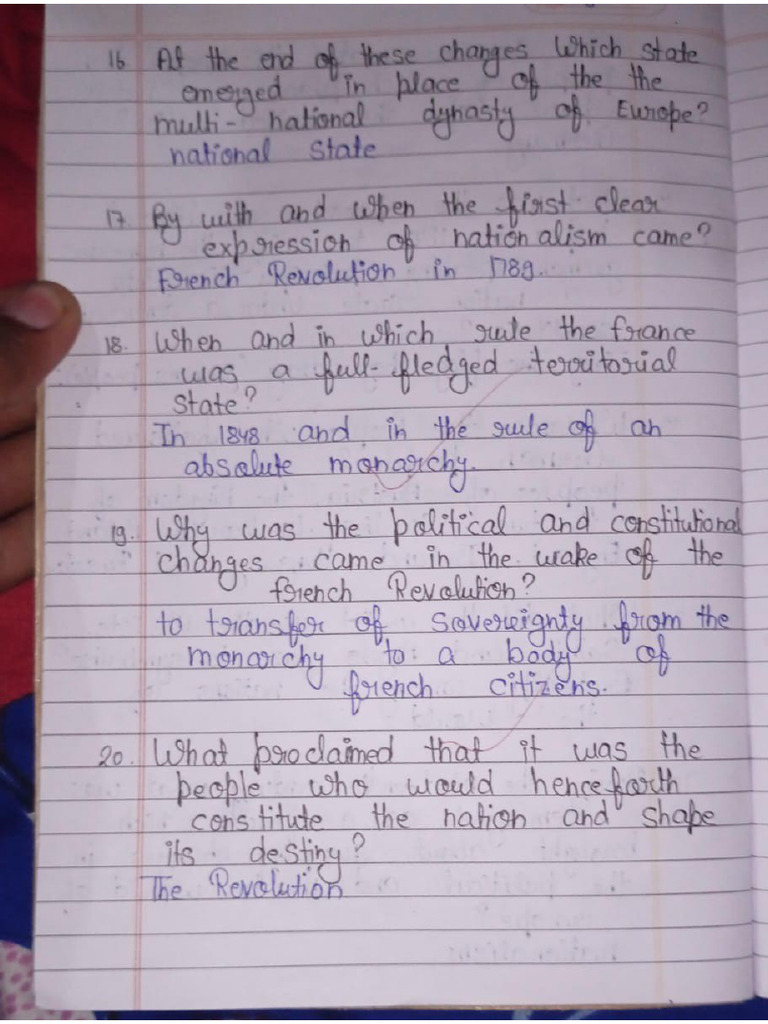 16 At the end of these changes which state
emerged in place of the the
multi- national dynasty of Europe?
national state
17. By with and when the first clear
expression of nationalism came?
French Revolution in 1789.
18. When and in which rule the france
was a full-fledged territorial
state?
In 1848 and in the rule of an
absolute monarchy.
19. Why was the political and constitutional
changes came in the wake of the
french Revolution?
to transfer of sovereignty from the
monarchy to a body of
french citizens.
20. What proclaimed that it was the
people who would henceforth
constitute the nation and shape
its destiny?
The Revolution